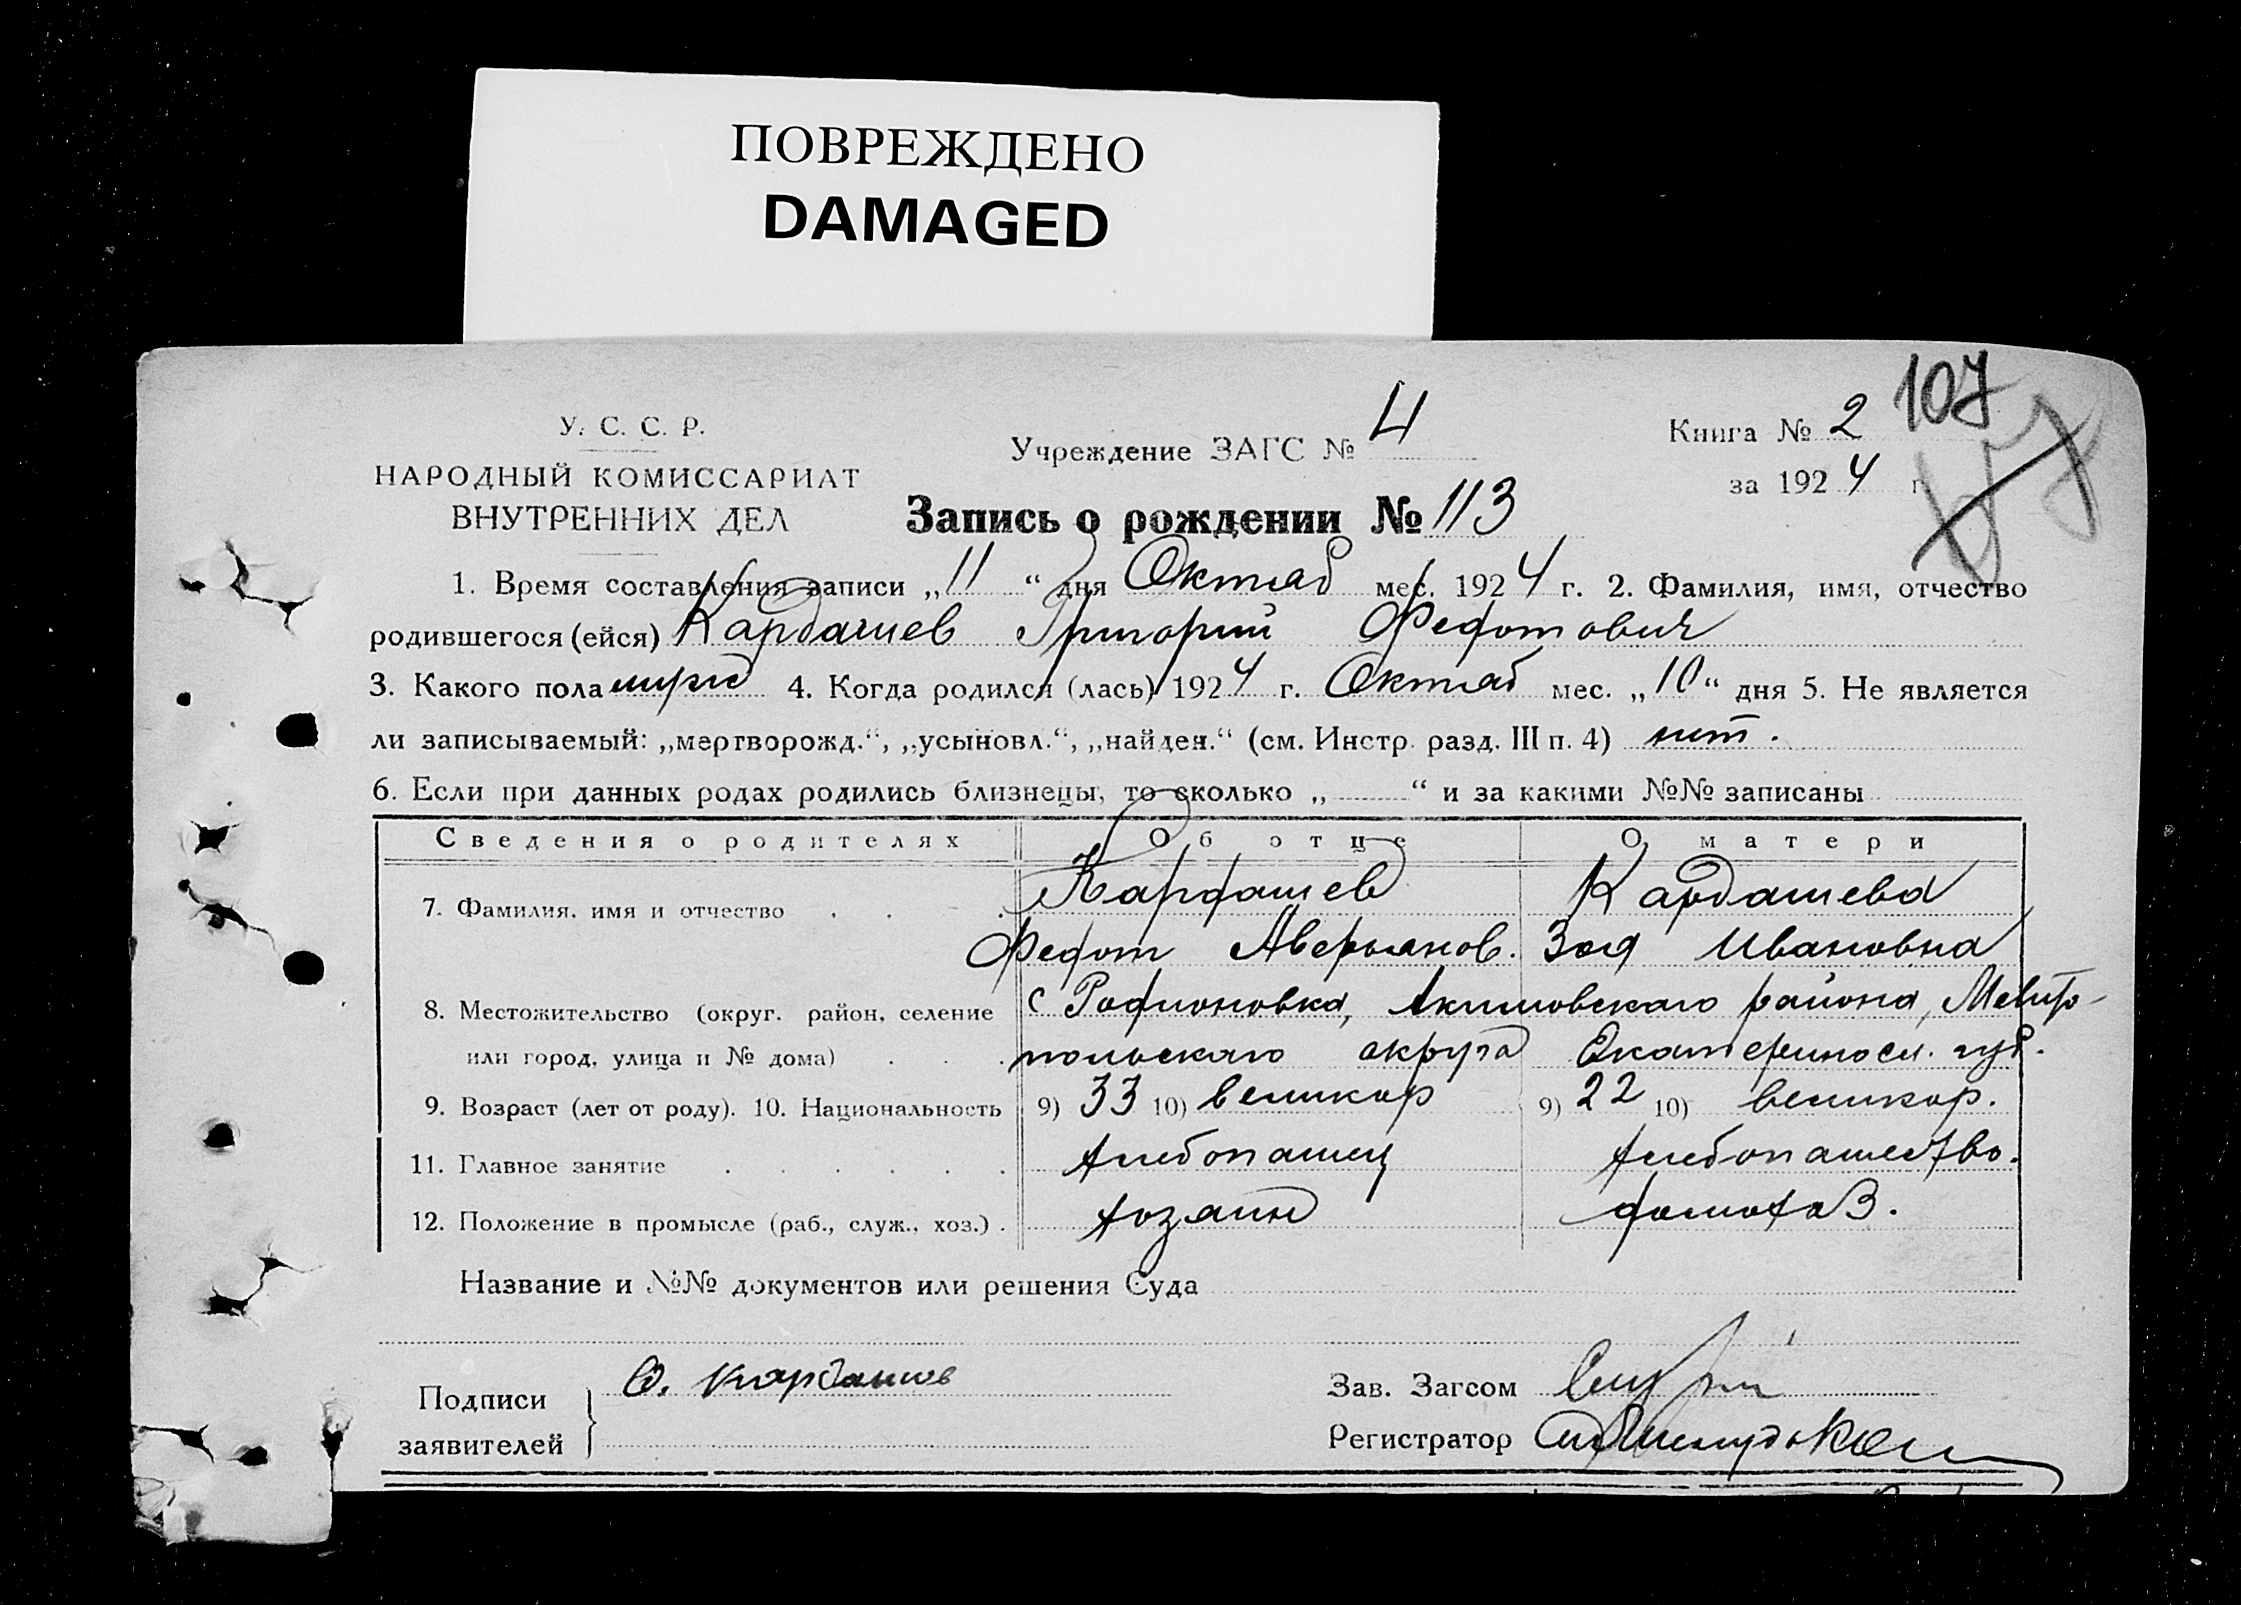 ПОВРЕЖДЕНО
DAMAGED
107
У. С. С. Р.
НАРОДНЫЙ КОМИССАРИАТ
ВНУТРЕННИХ ДЕЛ
Учреждение ЗАГС № 4
Книга № 2
за 1924 г.
Запись о рождении № 113
1. Время составления записи „11“ дня Октяб мес. 1924 г. 2. Фамилия, имя, отчество
родившегося (ейся) Кардашев Григорий Федотович
3. Какого пола мужс 4. Когда родился (лась) 1924 г. Октяб мес. „10“ дня 5. Не является
ли записываемый: „мертворожд.“, „усыновл.“, „найден.“ (см. Инстр. разд. III п. 4) нет.
6. Если при данных родах родились близнецы, то сколько „ “ и за какими №№ записаны
Сведения о родителях Об отце О матери
7. Фамилия, имя и отчество Кардашев Кардашева
Федот Аверьянов. Зоя Ивановна
8. Местожительство (округ. район, селение с Родионовка, Акимовскаго района, Мелито-
или город, улица и № дома) польскаго округа Екатериносл. губ.
9. Возраст (лет от роду). 10. Национальность 9) 33 10) великор 9) 22 10) великор.
11. Главное занятие хлебопашец хлебопашество.
12. Положение в промысле (раб., служ., хоз.) хозяин домохоз.
Название и №№ документов или решения Суда
Подписи
заявителей
Ф. Кардашов
Зав. Загсом
Регистратор